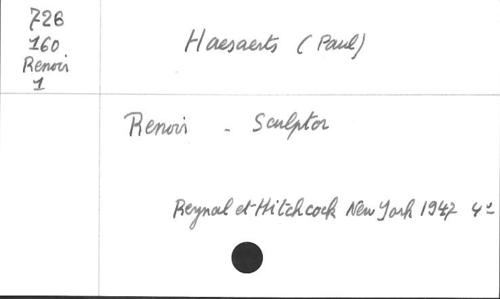 726
160
Renoir
1
Haesaerts (Paul)
Renoir - Sculptor
Reynal et Hitchcock New York 1947 4°